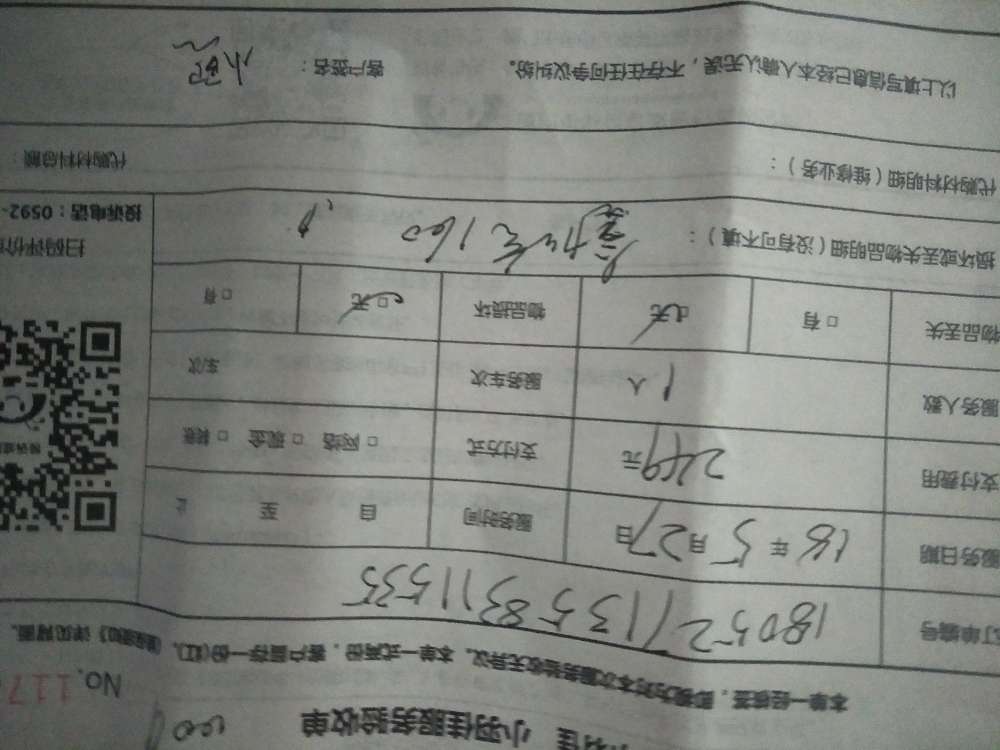 小羽佳服务验收单
No. 117
本单一经核签，即视为对本次服务验收无异议。本单一式两份，客户留存一份(红)。 详见背面。
订单编号 180527113583115​35
服务日期 18年5月27日 服务时间 自 至 止
支付费用 249元 支付方式 □ 网络 □ 现金 □ 转账
服务人数 1人 服务车次 车次
物品丢失 □ 有 □ 无 物品损坏 □ 无 □ 有
损坏或丢失物品明细（没有可不填）： 160
代购材料明细（维修业务）： 代购材料总额：
以上填写信息已经本人确认无误，不存在任何争议纠纷。 客户签名：
扫码评价
投诉电话：0592-